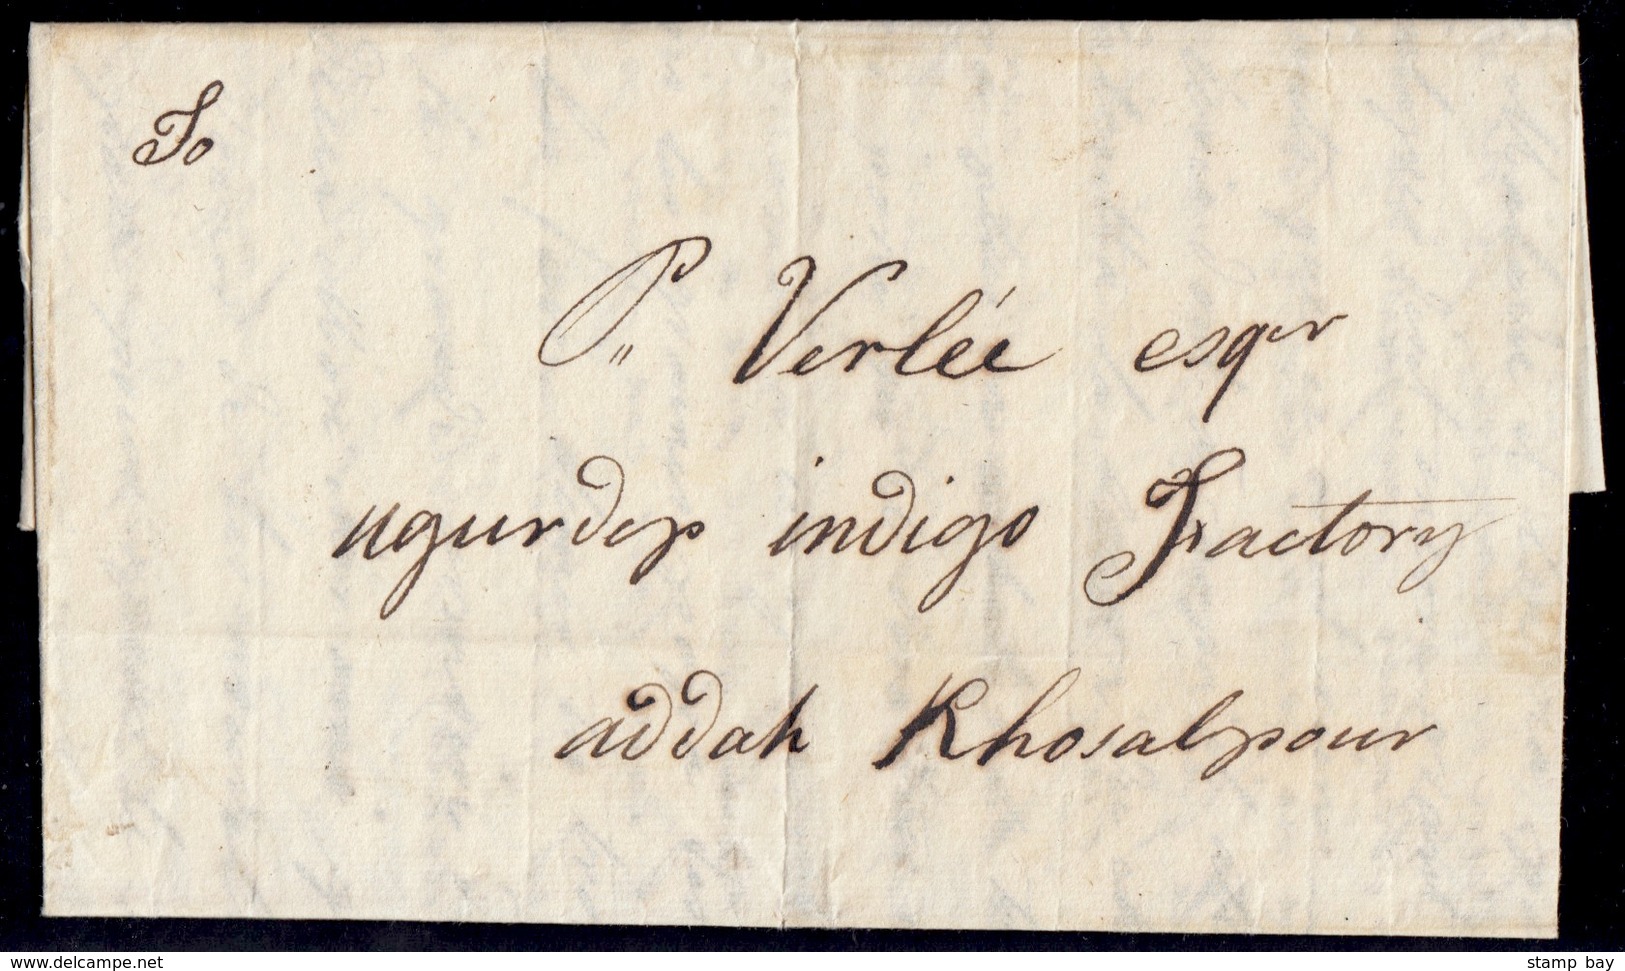 To
P„ Verlée esqer
ugurdep indigo Factory
addah Khosalpour
www.delcampe.net
stamp bay